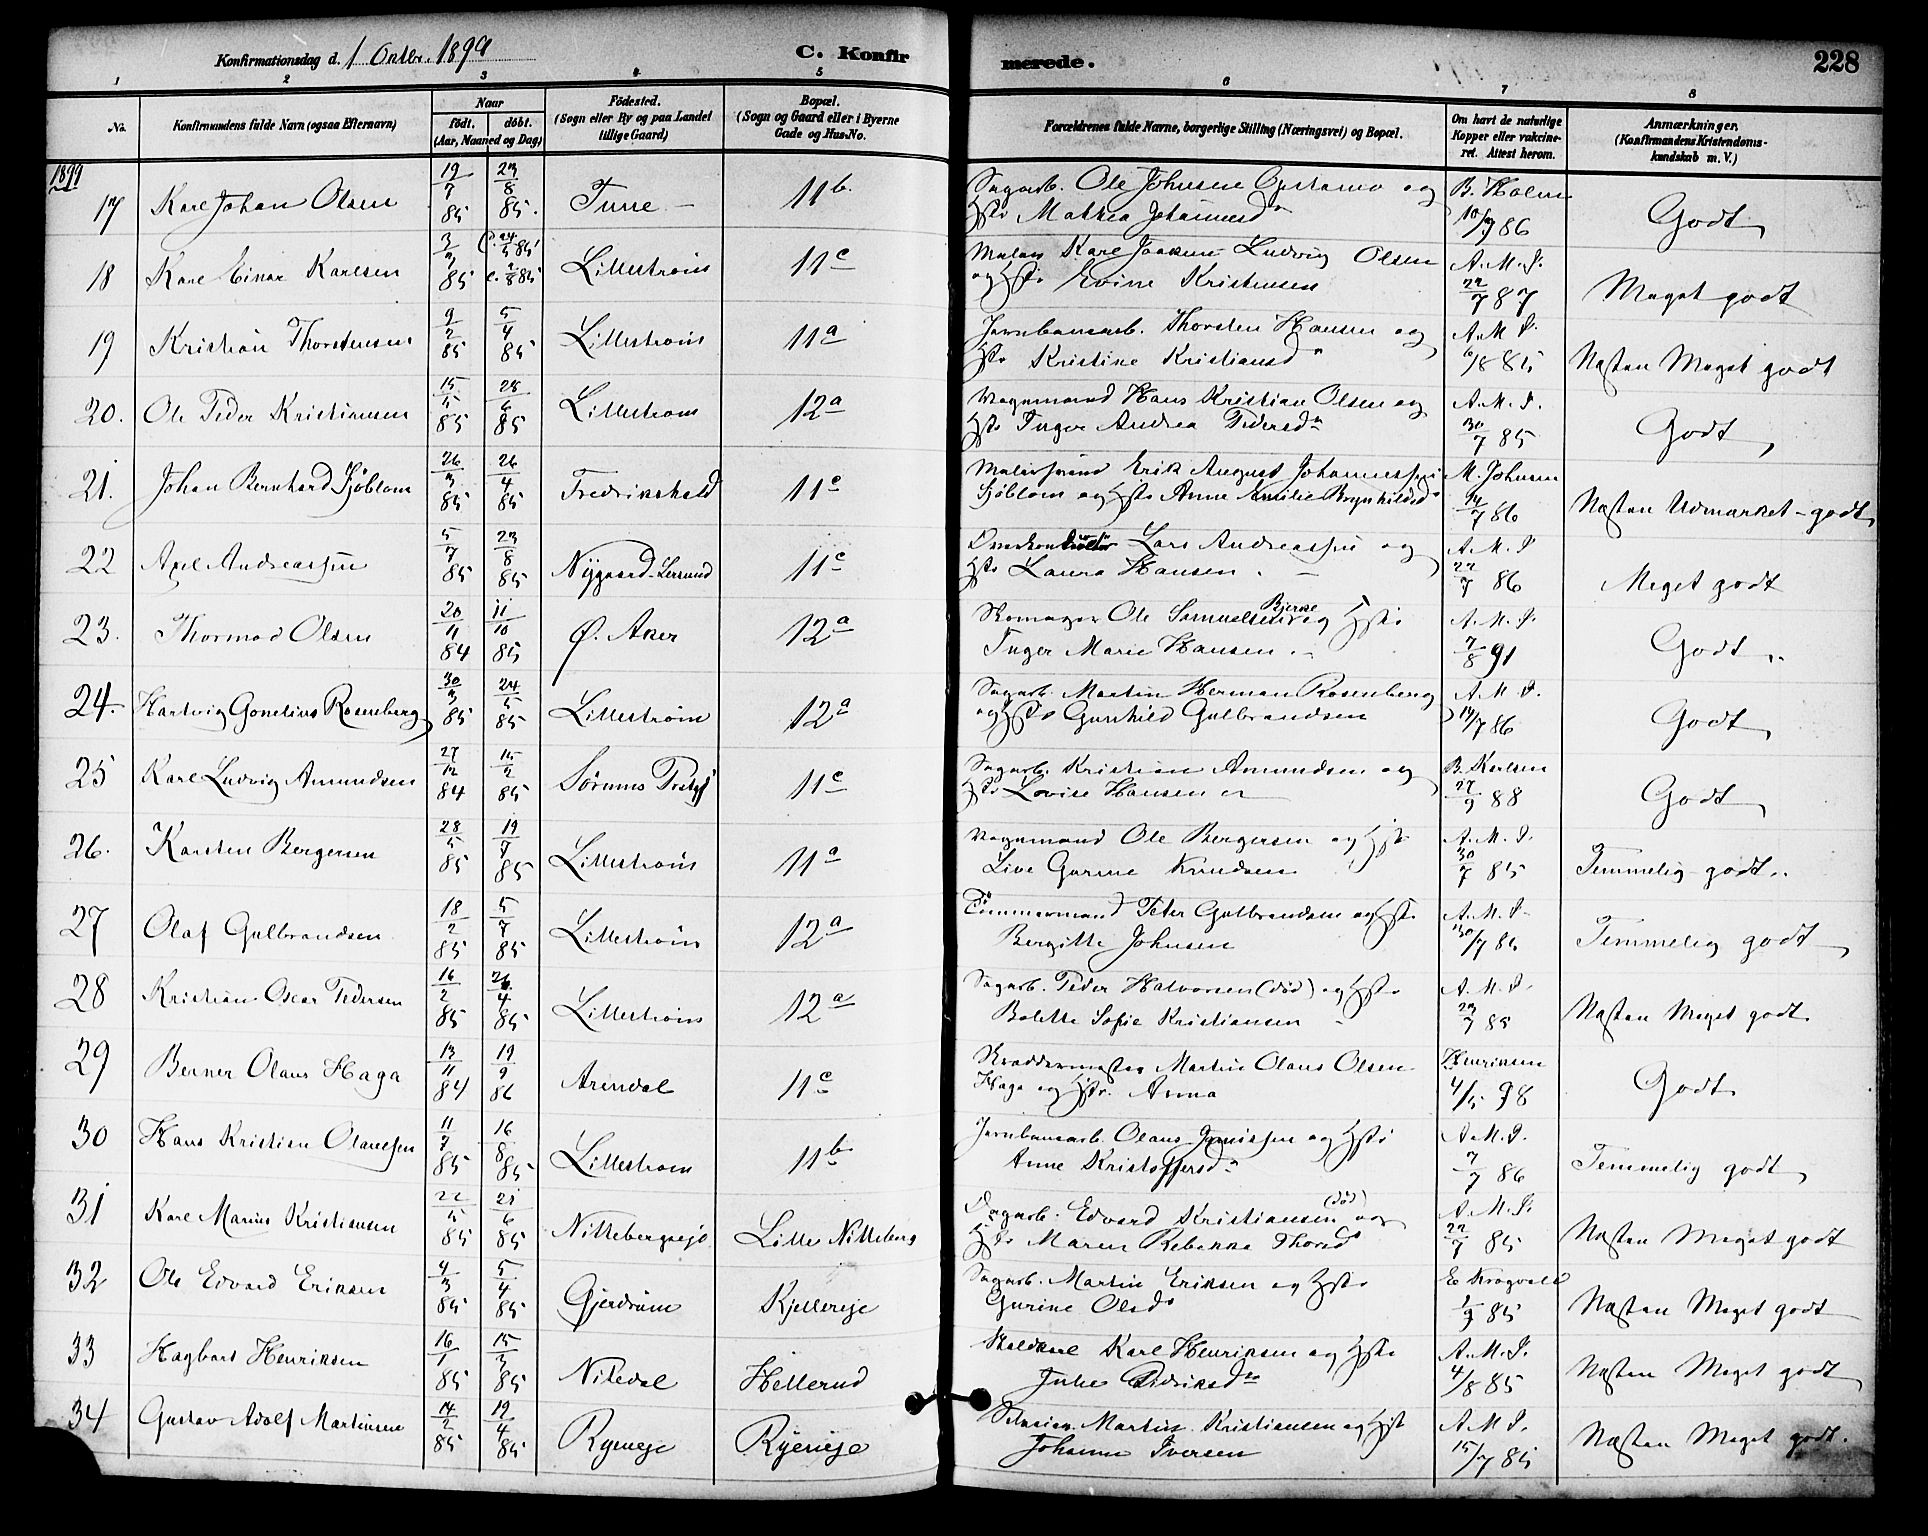 Konfirmationsdag d. 1 Octbr. 1899
C. Konfirmerede.
228
1 2 3 4 5 6 7 8
No.
Konfirmandens fulde Navn (ogsaa Efternavn)
Naar
födt. döbt.
(Aar, Maaned og Dag)
Födested.
(Sogn eller By og paa Landet
tillige Gaard)
Bopæl.
(Sogn og Gaard eller i Byerne
Gade og Hus-No.
Forældrenes fulde Navne, borgerlige Stilling (Næringsvei) og Bopæl.
Om havt de naturlige
Kopper eller vakcine-
ret. Attest herom.
Anmærkninger.
(Konfirmandens Kristendoms-
kundskab m. V.)
1899
17 Karl Johan Olsen 19/7 85 23/8 85. Tune 11b. Sagarb. Ole Johnsen og
Hstr Mathea Johannesd B. Holm 10/9 86 Godt
18 Karl Einar Karlsen 3/3 85 Lillestrøm 11c Maler Karl Joakim Ludvig Olsen
og Hstr Evine Kristensen A. M. S. 22/7 87 Meget godt
19 Kristian Thorstensen 9/2 85 5/4 85 Lillestrøm 11a Jernbanearb. Thorsten Hansen og
Hstr Kristine Kristiansd A. M. S. 6/8 85 Næsten Meget godt
20. Ole Peder Kristiansen 15/5 85 28/6 85 Lillestrøm 12a Vognmand Hans Kristian Olsen og
Hstr Inger Andrea Pedersd A. M. S. 30/7 85 Godt
21. Johan Bernhard Sjöblom 26/3 85 26/4 85 Fredrikshald 11c Erik August Johannessen
Sjöblom og Hstr Anne Amilie Brynhildsd M. Johnsen 14/7 86 Næsten Udmærket-godt
22 Axel Andreassen 5/7 85 23/8 85 Nygaard-Lersund 11c Lars Andreassen og
Hstr Laura Hansen A. M. S 22/7 86 Meget godt
23. Thormod Olsen 20/11 84 11/10 85 Ø. Aker 12a Skomager Ole Samuelsen Bjerke og Hstr
Inger Marie Hansen A. M. S. 7/8 91 Godt
24. Hartvig Gonelius Rosenberg 30/3 85 24/5 85 Lillestrøm 12a Sagarb. Martin Herman Rosenberg
og Hstr Gunhild Gulbrandsen A. M. S. 14/7 86 Godt
25 Karl Ludvig Amundsen 27/12 84 15/2 85 Sörums 11c Sagarb. Kristian Amundsen og
Hstr Lovise Hansen B. Karlsen 27/9 88 Godt
26. Karsten Bergersen 28/5 85 19/7 85 Lillestrøm 11a Vognmand Ole Bergersen og Hstr
Live Gurine Knudsen A. M. S. 30/7 85 Temmelig godt
27 Olaf Gulbrandsen 18/2 85 5/7 85 Lillestrøm 12a Tömmermand Peter Gulbrandsen og Hstr
Bergitte Johnsen A. M. S. 30/7 85 Temmelig godt
28 Kristian Oscar Pedersen 16/2 85 26/4 85 Lillestrøm 12a Sagarb. Peder Halvorsen (død) og Hstr
Bolette Sofie Kristiansen A. M. S. 23/7 85 Næsten Meget godt
29 Berner Olaus Haga 13/11 84 19/9 86 Arendal 11c Skræddermester Martin Olaus Olsen
Haga og Hstr. Anna Henriksen 4/5 98 Godt
30 Hans Kristian Olausen 11/7 85 16/8 85 Lillestrøm 11b Jernbanearb. Olaus og Hstr
Anne Kristoffersd A. M. S. 7/7 86 Temmelig godt
31 Karl Marius Kristiansen 22/5 85 21/6 85 Nittebergseje Lille Nitteberg Dagarb. Edvard Kristiansen (død) og
Hstr Maren Rebekka Thorsd A. M. S. 22/7 85 Næsten Meget godt
32 Ole Edvard Eriksen 4/3 85 5/4 85 Gjerdrum Kjellereje Sagarb. Martin Eriksen og Hstr
Gurine Olsd E Krogvold 1/9 85 Næsten Meget godt
33 Hagbart Henriksen 16/1 85 15/3 85 Nitedal Hellerud Karl Henriksen og Hstr
Julie Didriksd A. M. S. 4/8 85 Næsten Meget godt
34 Gustav Adolf Martinsen 14/2 85 19/4 85 Ryeneje Ryeneje Martin Kristiansen og Hstr
Johanne Iversen A. M. S. 15/7 85 Næsten Meget godt.